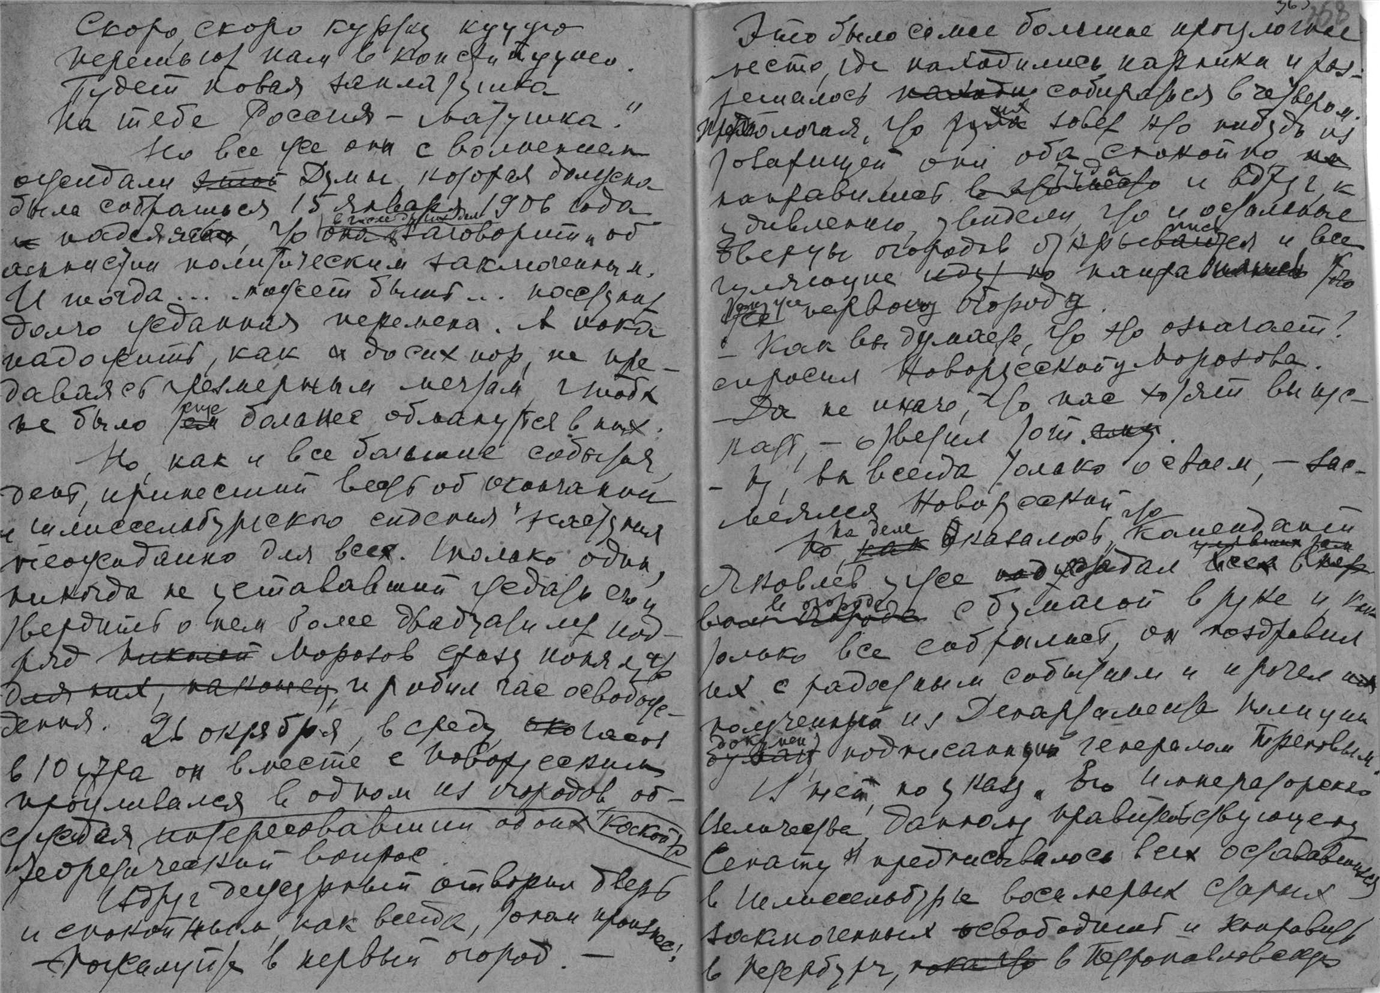 Скоро, скоро куртку куцую
перешьют нам в конституцию.
Будет новая заплатушка
На тебе Россия – матушка."
Но все же они с волнением
ожидали этой Думы, которая должна
была собраться 15 января 1906 года
и надеялись, что она заговорит об
амнистии политическим заключенным.
И тогда... может быть... наступит
долго жданная перемена. А пока
надо жить, как и до сих пор, не пре-
даваясь чрезмерным мечтам, чтобы
не было еще больнее обмануться в них.
Но, как и все большие события,
день, принесший весть об окончании
шлиссельбургского сидения наступил
неожиданно для всех. Только один,
никогда не устававший ждать его и
твердить о нем более двадцати лет под-
ряд Николай Морозов сразу понял, что
для них, наконец, и пробил час освобож-
дения. 26 октября, в среду, около часов
в 10 утра он вместе с Новорусским
прогуливался в одном из огородов, об-
суждая интересовавший обоих
теоретический вопрос.
Вдруг дежурный отворил дверь
и спокойным как всегда, тоном произнес:
– Пожалуйте в первый огород. –
368
Это было самое большое прогулочное
место, где находились парники и раз-
решалось находи собираться вчетвером.
Предполагая, что туда их зовет кто нибудь из
товарищей они оба спокойно
направились туда и вдруг, к
удивлению, увидели, что и остальные
дверцы огородов открываются и все
гуляющие идут по направлению
первому огороду.
– Как вы думаете, что это означает?
спросил Новорусский у Морозова.
– Да не иначе, что нас хотят выпус-
кать, – ответил тот ему.
– Ну, вы всегда только о своем, – зас-
меялся Новорусский.
Но как на деле оказалось, что комендант
Яковлев уже поджидал всех
в огороде с бумагой в руке и как
только все собрались, он поздравил
их с радостным событием и прочел им
полученный из Департамента полиции
документ, подписанный генералом Треповым.
В нем, по указу Его Императорского
Величества, данному правительствующему
Сенату предписывалось всех остававшихся
в Шлиссельбурге восьмерых старых
заключенных освободить и направить
в Петербург, пока что в Петропавловскую